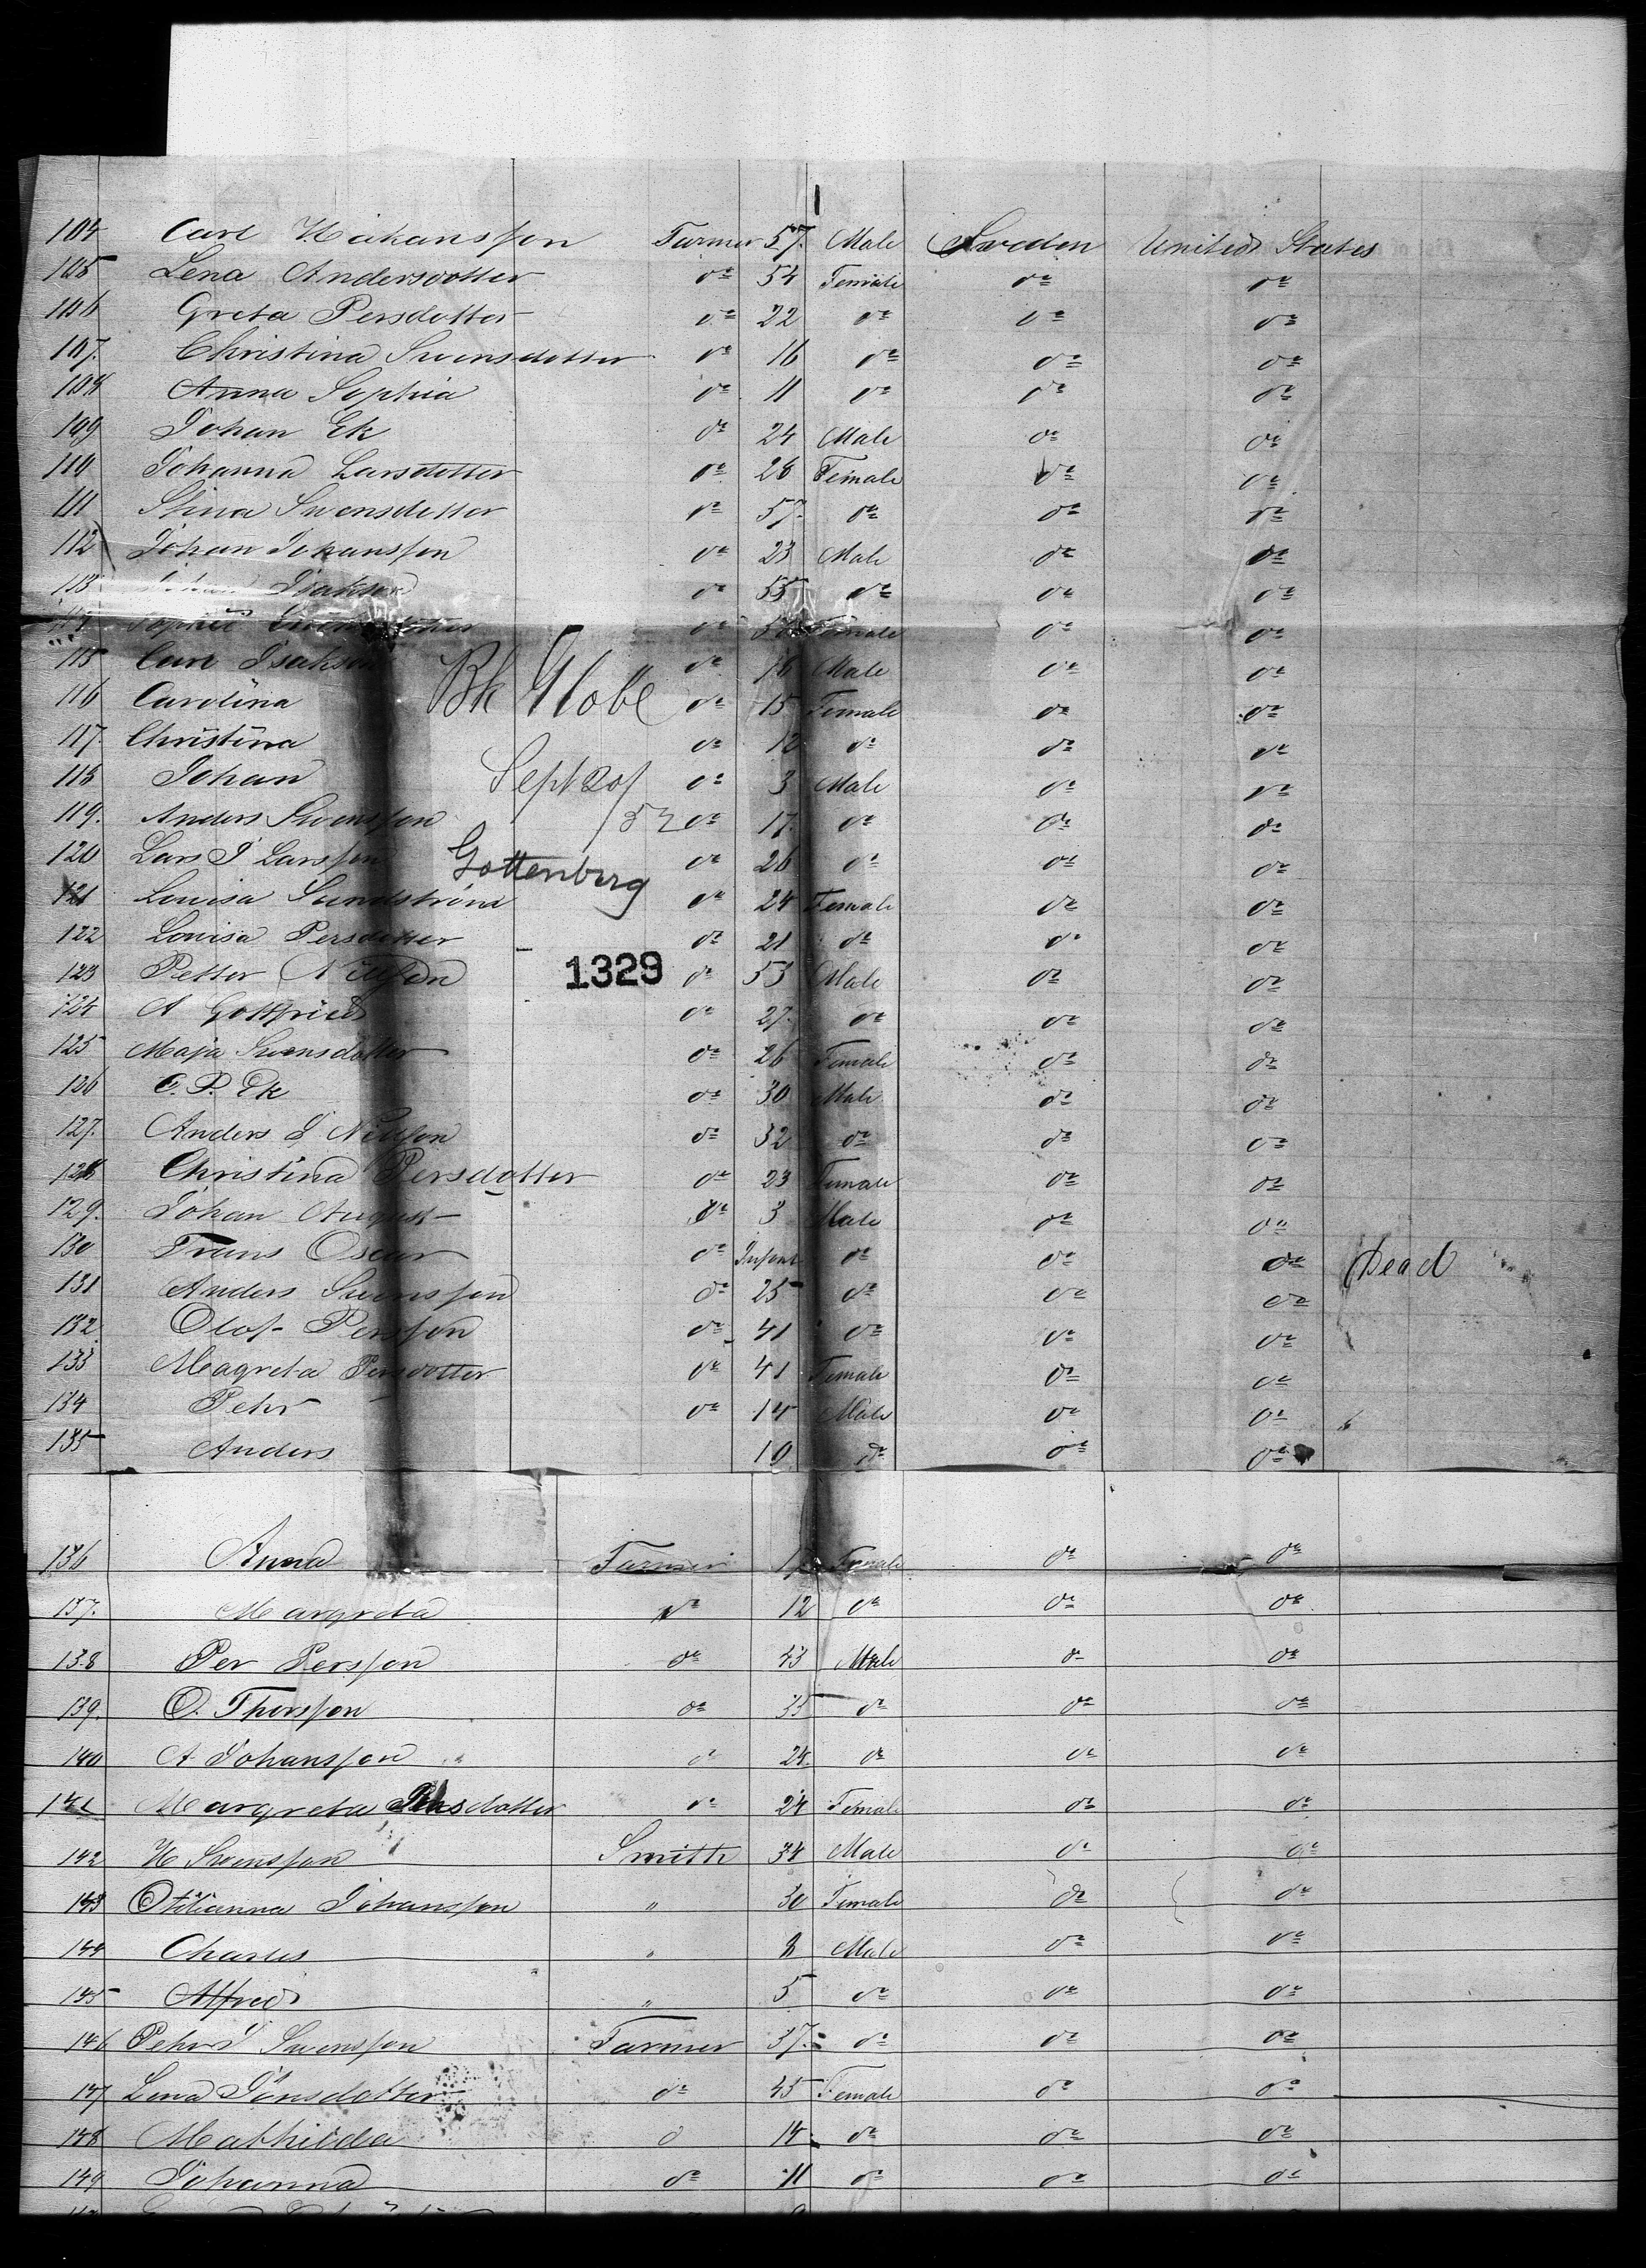 104 Carl Håkansson Farmer 57. Male Sweden United States
105 Lena Andersdotter do 54 Female do do
106 Greta Persdotter do 22 do do do
107. Christina Svensdotter do 16 do do do
108 Anna Sophia do 11 do do do
109 Johan Ek do 24 Male do do
110 Johanna Larsdotter do 28 Female do do
111 Stina Svensdotter do 57. do do do
112 Johan Johansson do 23 Male do do
113 Isakson do 55 do do do
Sophie do Female do do
115 Carl Isakson do 18 Male do do
116 Carolina do 15 Female do do
117. Christina do 12 do do do
118 Johan do 3 Male do do
119. Anders Svensson do 17. do do do
120 Lars J Larsson do 26 do do do
121 Louisa Sundström do 24 Female do do
122 Louisa Persdotter do 21 do do do
123 Petter Nilsson do 53 Male do do
124 A Gottfried do 27. do do do
125 Maja Svensdotter do 26 Female do do
126 C. P. Ek do 30 Male do do
127. Anders J Nilsson do 32 do do do
128 Christina Persdotter do 23 Female do do
129. Johan August do 3 Male do do
130 Frans Oscar do Infant do do do Dead
131 Anders Svensson do 25 do do do
132 Olof Persson do 41 do do do
133 Magreta Persdotter do 41 Female do do
134 Pehr do 14 Male do do
135 Anders 10 do do do
Bk Globe
Sept 20/
52
Gottenberg
1329
136 Anna Farmer 17 Female do do
137. Margreta do 12 do do do
138 Per Persson do 43 Male do do
139. O. Thorsson do 35 do do do
140 A Johansson do 24. do do do
141 Margreta Persdotter do 24 Female do do
142 H Svensson Smith 34 Male do do
143 Otilianna Johansson " 30 Female do do
144 Charles " 8 Male do do
145 Alfred " 5 do do do
146 Pehr J Svensson Farmer 37. do do do
147 Lena Jönsdotter do 45 Female do do
148 Mathilda do 14 do do do
149 Johanna do 11 do do do